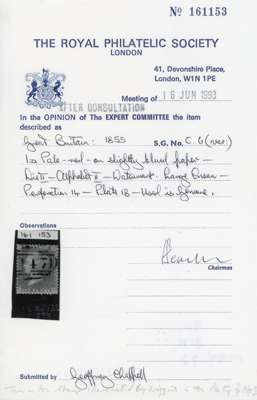 No 161153
THE ROYAL PHILATELIC SOCIETY
LONDON
41, Devonshire Place,
London, W1N 1PE
Meeting of 16 JUN 1993
AFTER CONSULTATION
In the OPINION of The EXPERT COMMITTEE the item
described as
Great Britain: 1855 S.G. No. C.6 (var)
1d Pale-red on slightly blued paper -
Die II - Alphabet II - Watermark Large Crown -
Perforation 14 - Plate 18 - Used is genuine.
Observations
161 153
Chairman
Submitted by Geoffrey